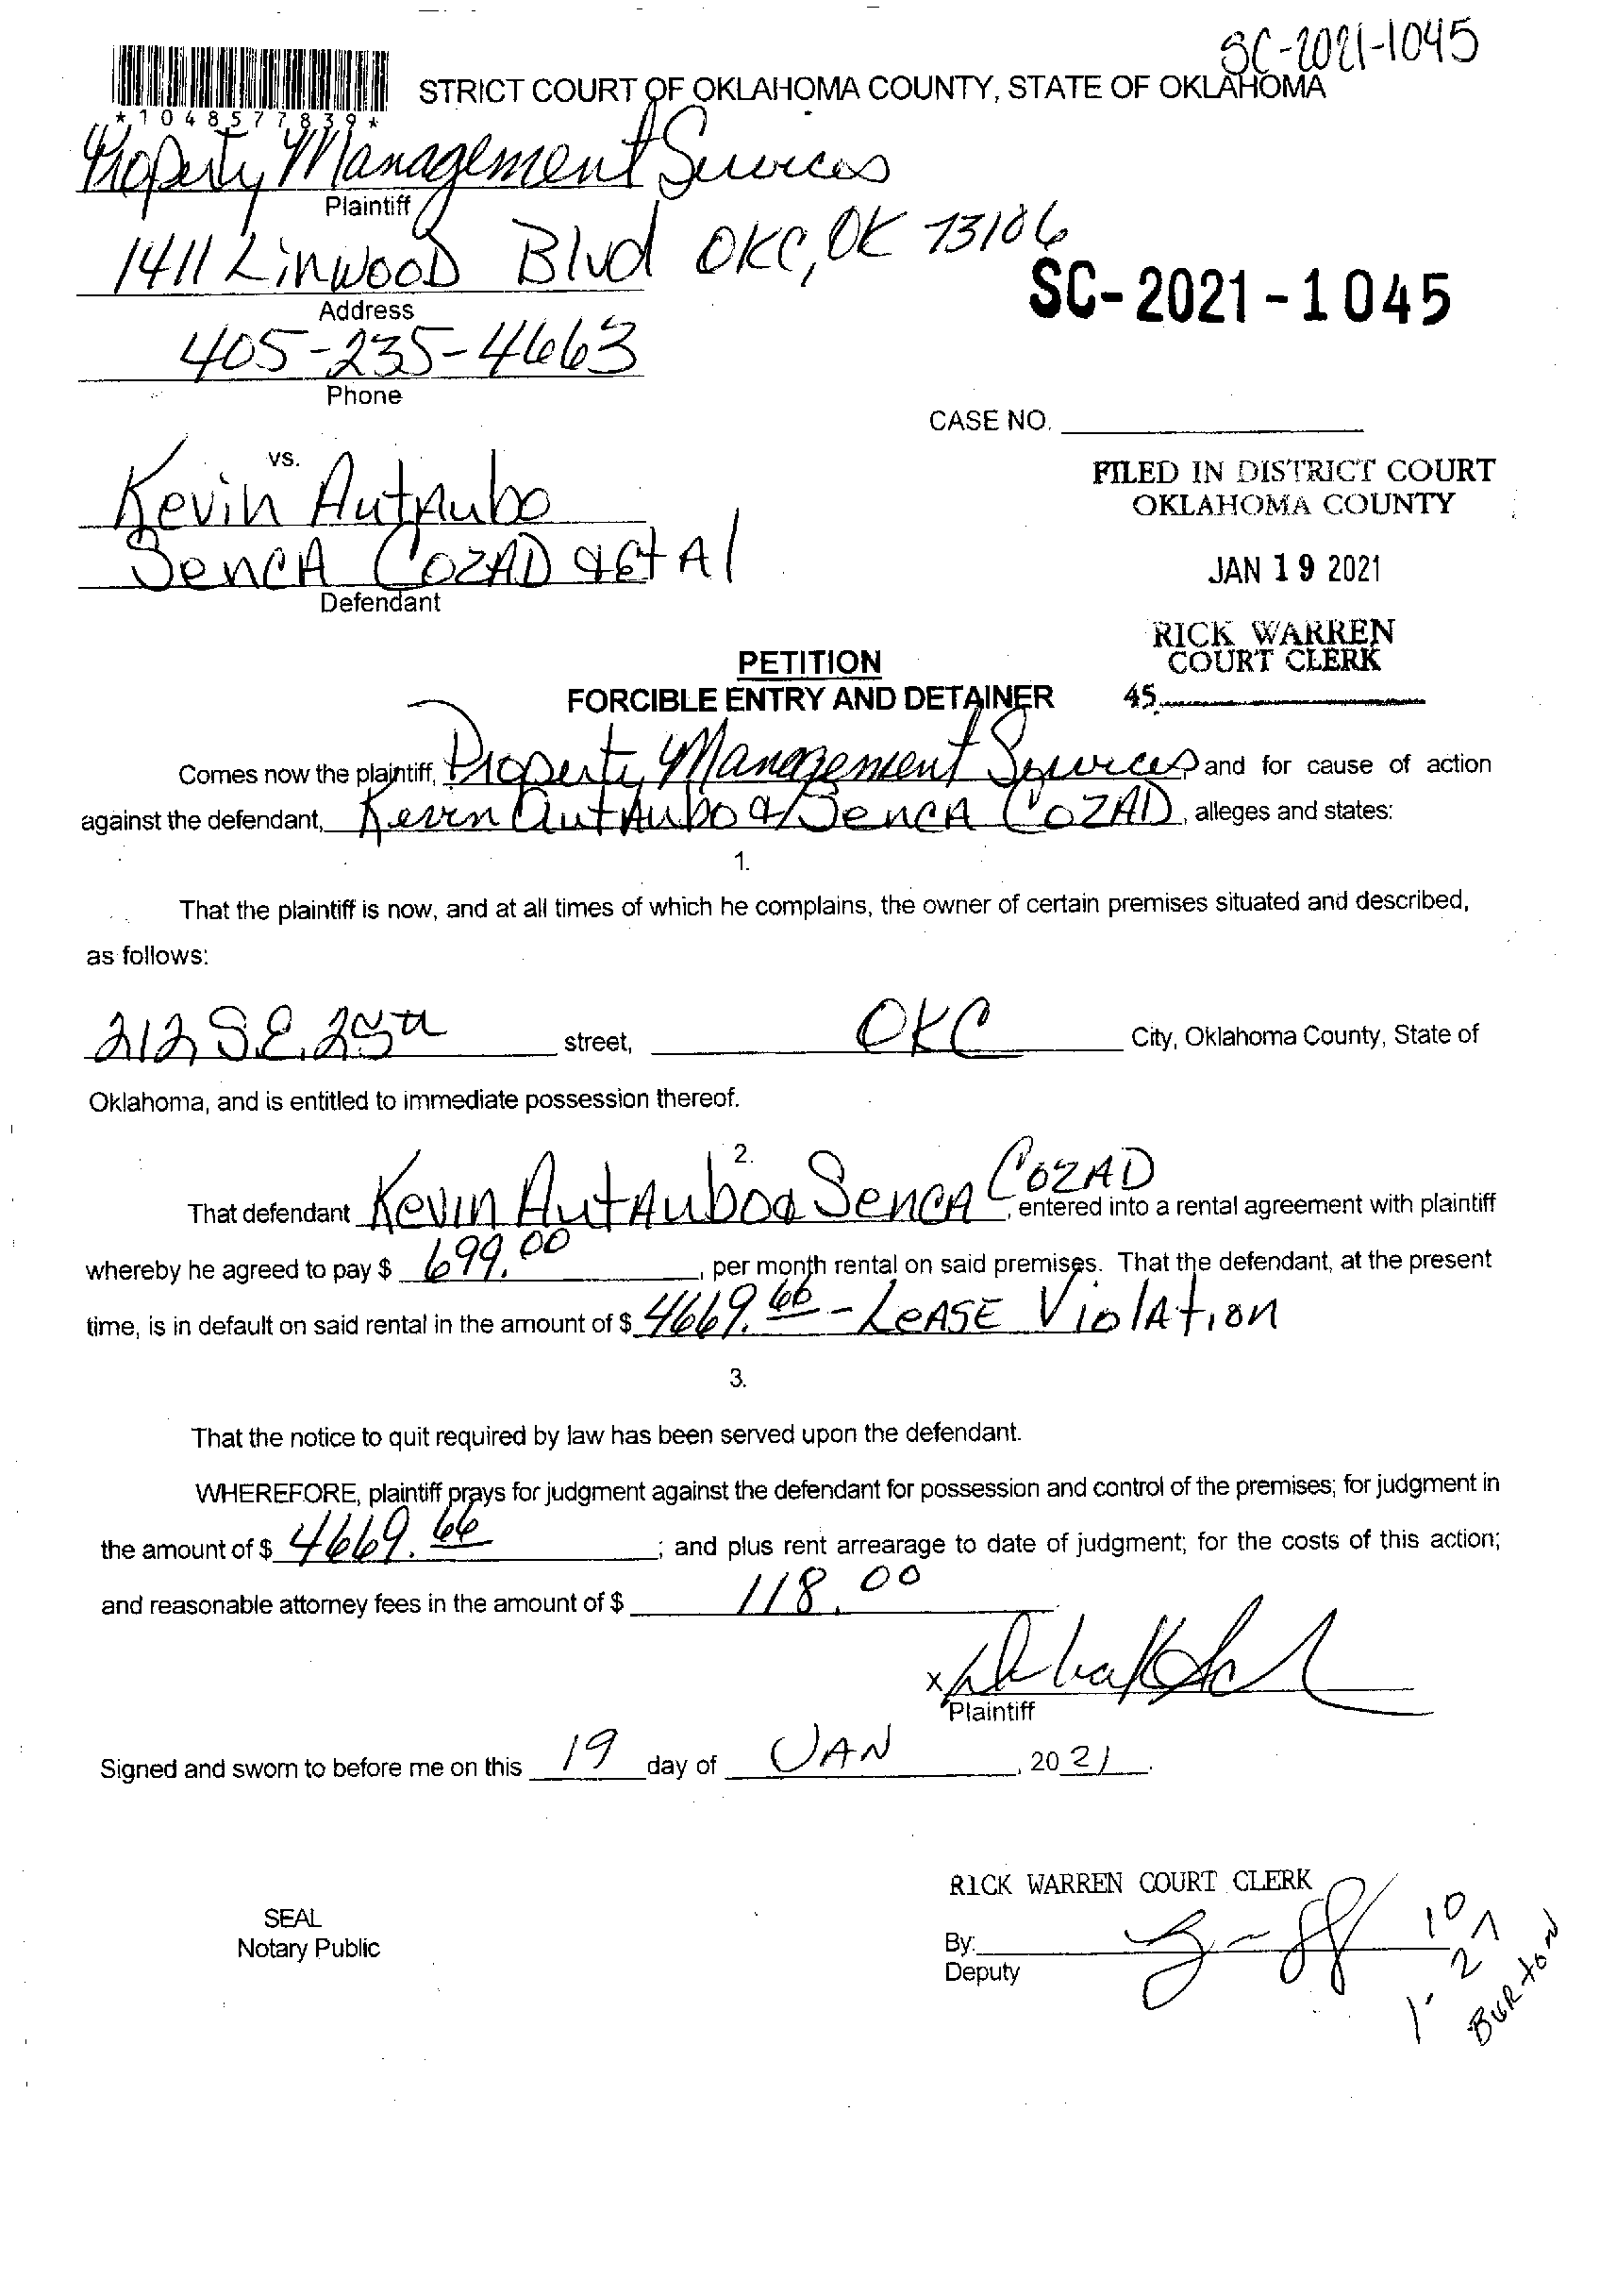 SC-2021-1045
STRICT COURT OF OKLAHOMA COUNTY, STATE OF OKLAHOMA
*1048577839*
Property Management Services
Plaintiff
1411 Linwood Blvd OKC, OK 73106
Address
SC-2021-1045
405-235-4663
Phone
CASE NO.
vs.
Kevin Autaubo
Senca Cozad & et Al
Defendant
FILED IN DISTRICT COURT
OKLAHOMA COUNTY
JAN 19 2021
RICK WARREN
COURT CLERK
45
PETITION
FORCIBLE ENTRY AND DETAINER
Comes now the plaintiff, Property Management Services and for cause of action
against the defendant, Kevin Autaubo & Senca Cozad, alleges and states:
1.
That the plaintiff is now, and at all times of which he complains, the owner of certain premises situated and described,
as follows:
212 S.E. 25th street, OKC City, Oklahoma County, State of
Oklahoma, and is entitled to immediate possession thereof.
2.
That defendant Kevin Autaubo & Senca Cozad, entered into a rental agreement with plaintiff
whereby he agreed to pay $ 699.00, per month rental on said premises. That the defendant, at the present
time, is in default on said rental in the amount of $ 4669.66 - Lease Violation
3.
That the notice to quit required by law has been served upon the defendant.
WHEREFORE, plaintiff prays for judgment against the defendant for possession and control of the premises; for judgment in
the amount of $ 4669.66; and plus rent arrearage to date of judgment; for the costs of this action;
and reasonable attorney fees in the amount of $ 118.00
x
Plaintiff
Signed and sworn to before me on this 19 day of JAN, 2021.
RICK WARREN COURT CLERK
SEAL
Notary Public
By:
Deputy
10
1-27
Burton